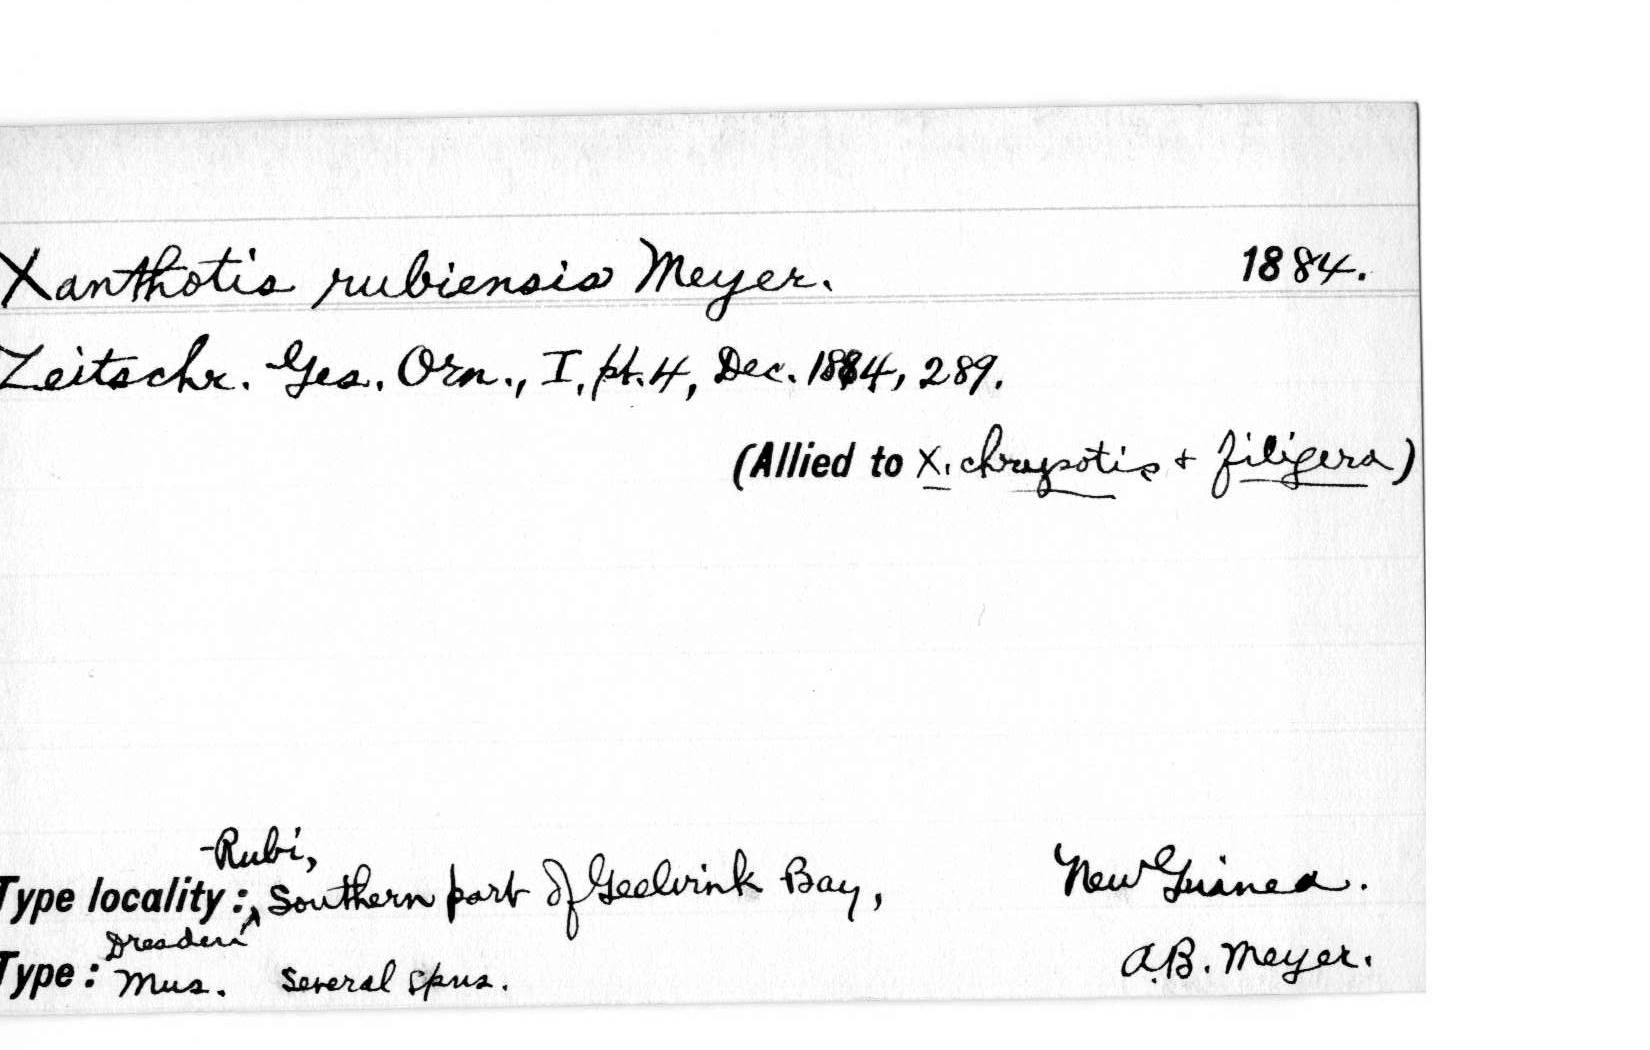 Xanthotis rubiensis Meyer. 1884.
Zeitschr. Ges. Orn., I, pt. 4, Dec. 1884, 289.
(Allied to X. chrysotis + filigera)
Rubi,
Type locality: Southern part of Geelvink Bay, New Guinea.
Dresden
Type: Mus. Several spns. A.B. Meyer.